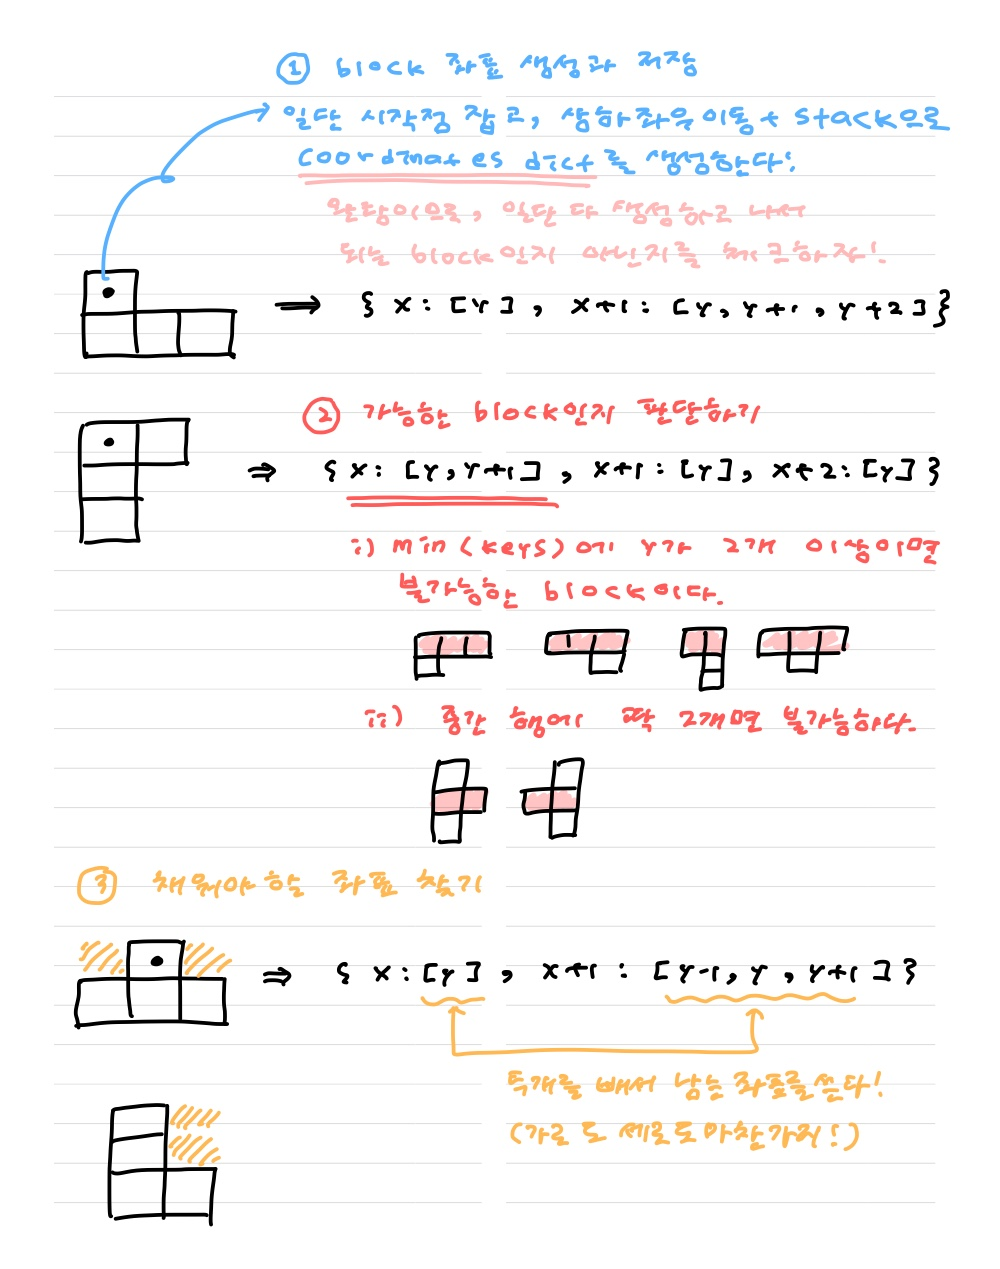 ① block 좌표 생성과 저장
일단 시작점 잡고, 상하좌우이동 + stack으로
coordinates dict를 생성한다!
완탐이므로, 일단 다 생성하고 나서
되는 block인지 아닌지를 체크하자!
⟹ { x: [y], x+1: [y, y+1, y+2] }
② 가능한 block인지 판단하기
⇒ { x: [y, y+1], x+1: [y], x+2: [y] }
i) min(keys)에 y가 2개 이상이면
불가능한 block이다.
ii) 중간 행에 딱 2개면 불가능하다.
③ 채워야 할 좌표 찾기
⇒ { x: [y], x+1: [y-1, y, y+1] }
두개를 빼서 남는 좌표를 쓴다!
(가로도 세로도 마찬가지!)